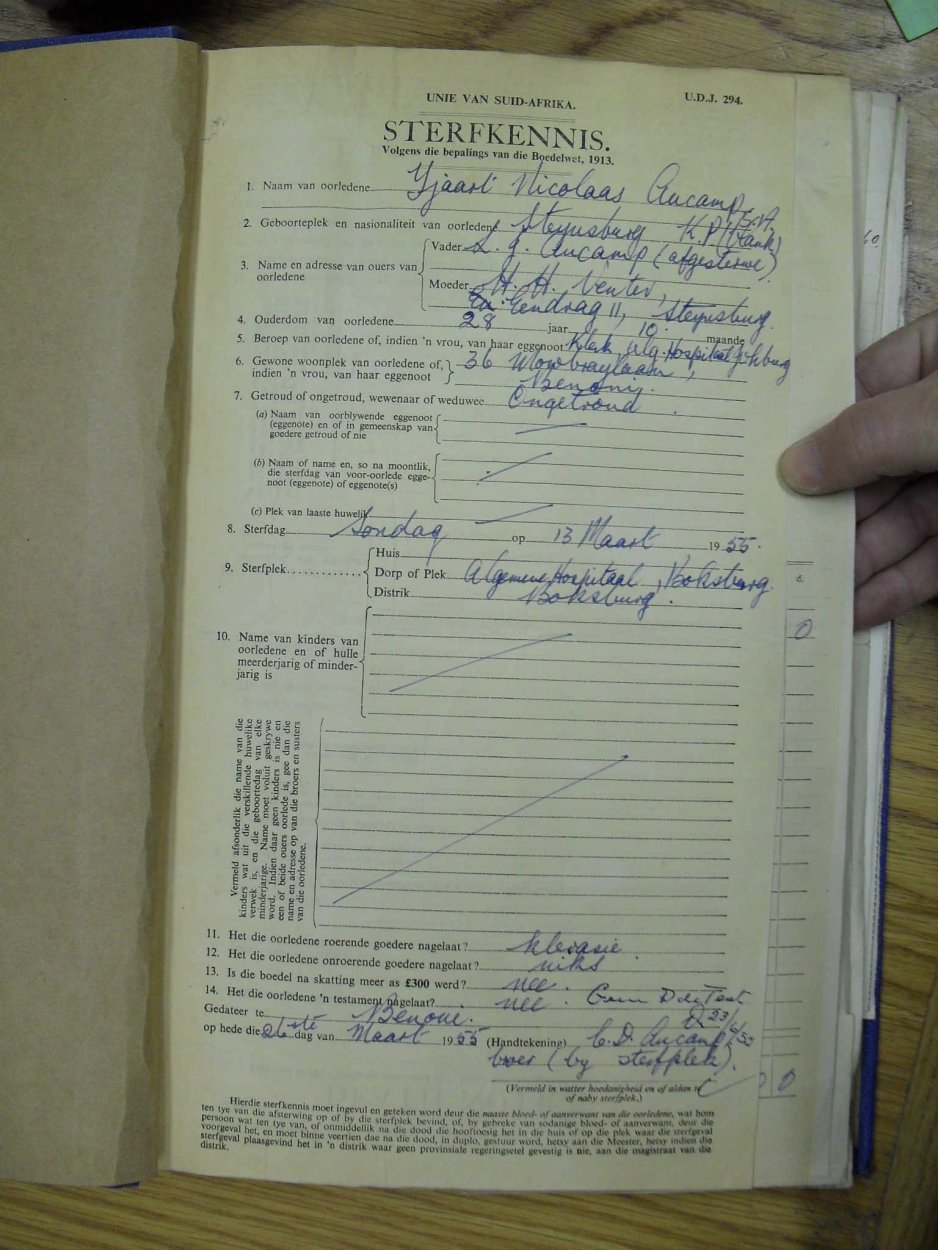 UNIE VAN SUID-AFRIKA.
U.D.J. 294.
STERFKENNIS.
Volgens die bepalings van die Boedelwet, 1913.
1. Naam van oorledene Tjaart Nicolaas Aucamp
2. Geboorteplek en nasionaliteit van oorledene Steynsburg K.P. (blank)
3. Name en adresse van ouers van oorledene
Vader L. J. Aucamp (afgesterwe)
Moeder H. H. Venter,
Eendrag 11, Steynsburg.
4. Ouderdom van oorledene 28 jaar 10 maande
5. Beroep van oorledene of, indien 'n vrou, van haar eggenoot Klerk Alg. Hospitaal
6. Gewone woonplek van oorledene of, indien 'n vrou, van haar eggenoot
36 Mowbraylaan,
Benoni.
7. Getroud of ongetroud, wewenaar of weduwee Ongetroud.
(a) Naam van oorblywende eggenoot
(eggenote) en of in gemeenskap van
goedere getroud of nie
(b) Naam of name en, so na moontlik,
die sterfdag van voor-oorlede egge-
noot (eggenote) of eggenote(s)
(c) Plek van laaste huwelik
8. Sterfdag Sondag op 13 Maart 1955.
9. Sterfplek
Huis
Dorp of Plek Algemene Hospitaal, Boksburg.
Distrik Boksburg.
10. Name van kinders van
oorledene en of hulle
meerderjarig of minder-
jarig is
Vermeld afsonderlik die name van die
kinders wat uit die verskillende huwelike
verwek is, en die geboortedag van elke
minderjarige. Name moet voluit geskrywe
word. Indien daar geen kinders is nie en
een of beide ouers oorlede is, gee dan die
name en adresse op van die broers en susters
van die oorledene.
11. Het die oorledene roerende goedere nagelaat? klerasie.
12. Het die oorledene onroerende goedere nagelaat? niks
13. Is die boedel na skatting meer as £300 werd? nee.
14. Het die oorledene 'n testament nagelaat? nee.
Gedateer te Benoni.
op hede die 26ste dag van Maart 1955 (Handtekening) C. D. Aucamp
broer (by sterfplek).
(Vermeld in watter hoedanigheid en of aldan te
of naby sterfplek.)
Hierdie sterfkennis moet ingevul en geteken word deur die naaste bloed- of aanverwant van die oorledene, wat hom
ten tye van die afsterwing op of by die sterfplek bevind, of, by gebreke van sodanige bloed- of aanverwant, deur die
persoon wat ten tye van, of onmiddellik na die dood die hooftoesig het in die huis of op die plek waar die sterfgeval
voorgeval het, en moet binne veertien dae na die dood, in duplo, gestuur word, hetsy aan die Meester, hetsy indien die
sterfgeval plaasgevind het in 'n distrik waar geen provinsiale regeringsetel gevestig is nie, aan die magistraat van die
distrik.